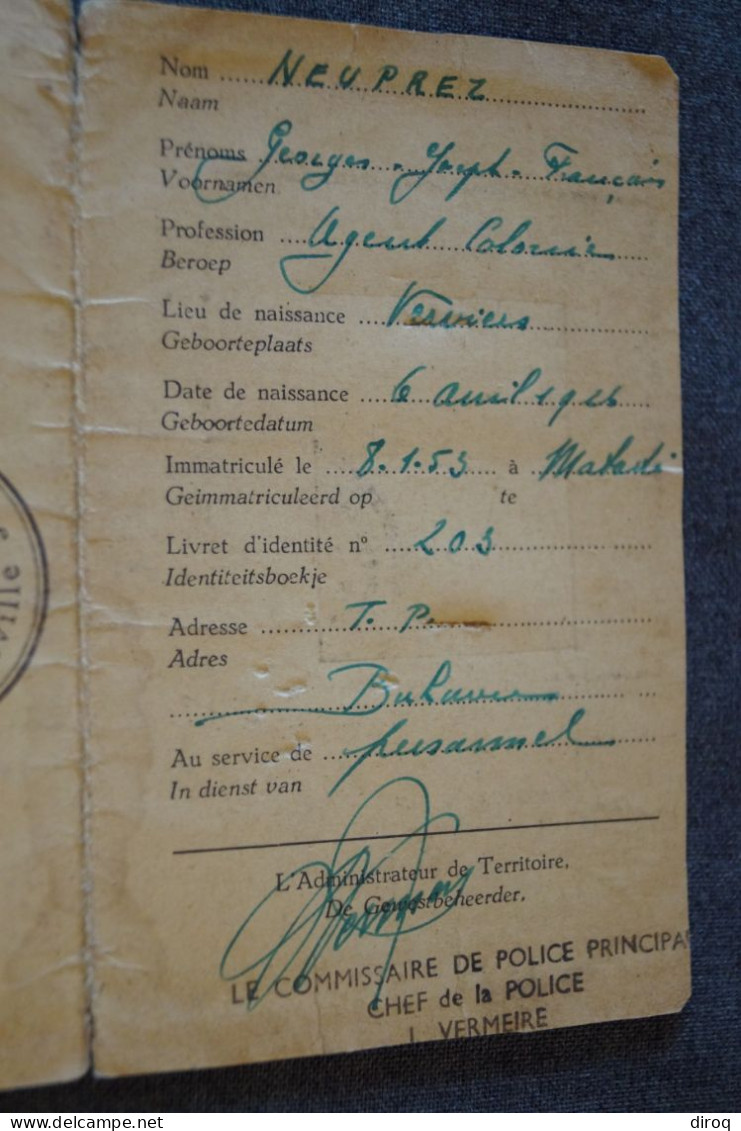 Nom NEUPREZ
Naam
Prénoms Georges - Joseph - Français
Voornamen
Profession Agent Colonie
Beroep
Lieu de naissance Verviers
Geboorteplaats
Date de naissance 6 avril 1926
Geboortedatum
Immatriculé le 8.1.53 à Matadi
Geimmatriculeerd op te
Livret d'identité nº 203
Identiteitsboekje
Adresse T. P.
Adres
Bukavu
Au service de personnel
In dienst van
L'Administrateur de Territoire,
De Gewestbeheerder,
LE COMMISSAIRE DE POLICE PRINCIPA
CHEF de la POLICE
VERMEIRE
ville
diroq